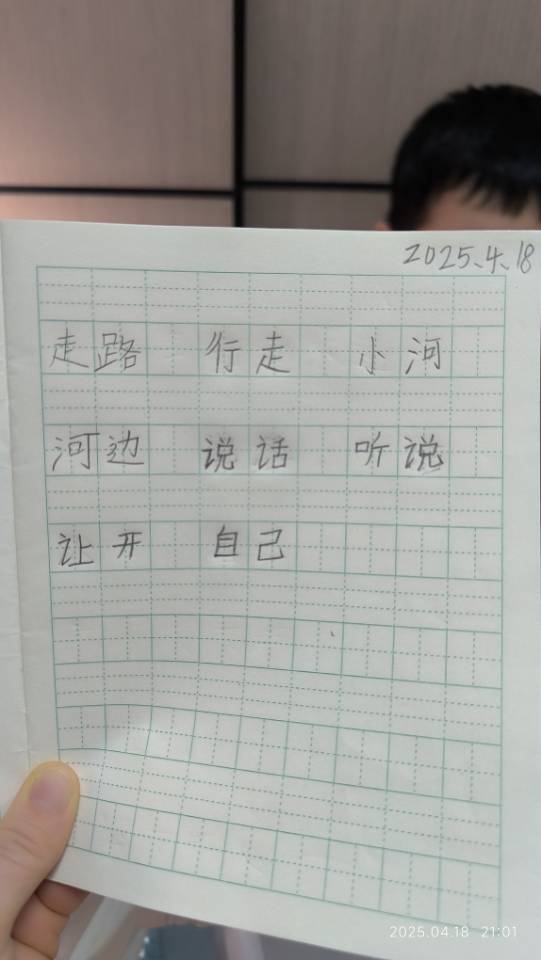 2025.4.18
走路 行走 小河
河边 说话 听说
让开 自己
2025.04.18 21:01